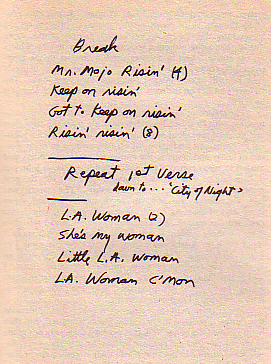 Break
Mr. Mojo Risin' (4)
Keep on risin'
Got to keep on risin'
Risin' risin' (8)
Repeat 1st Verse
down to... 'City of Night'
L.A. Woman (2)
She's my woman
Little L.A. Woman
L.A. Woman C'mon